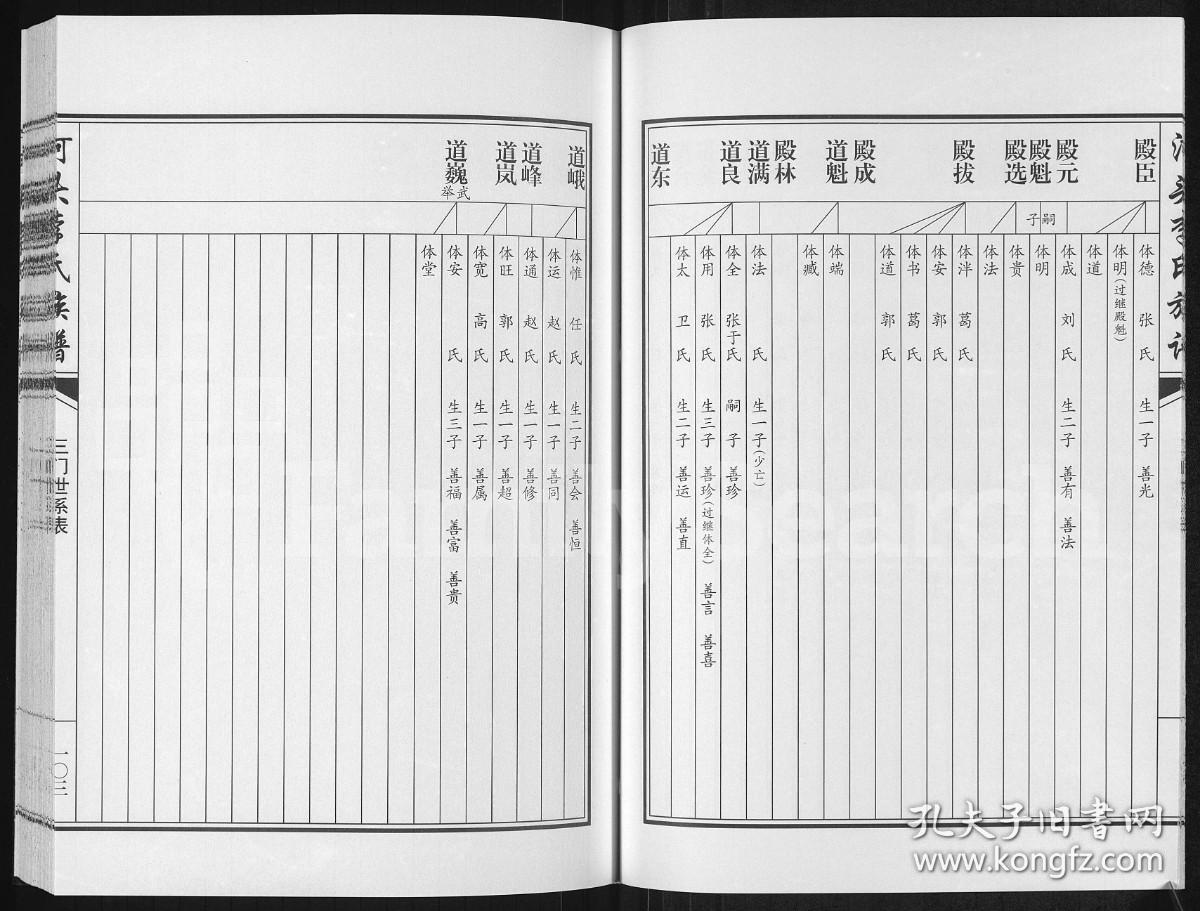 殿臣
殿元
殿魁
殿选
殿拔
殿成
道魁
殿林
道满
道良
道东
嗣子
体德 张氏 生一子 善光
体明(过继殿魁)
体道
体成 刘氏 生二子 善有 善法
体明
体贵
体法
体泮 葛氏
体安 郭氏
体书 葛氏
体道 郭氏
体端
体臧
体法 氏 生一子(少亡)
体全 张于氏 嗣子 善珍
体用 张氏 生三子 善珍(过继体全) 善言 善喜
体太 卫氏 生二子 善运 善直
道峨
道峰
道岚
道巍 武举
体惟 任氏 生二子 善会 善恒
体运 赵氏 生一子 善同
体通 赵氏 生一子 善修
体旺 郭氏 生一子 善超
体宽 高氏 生一子 善属
体安 氏 生三子 善福 善富 善贵
体堂
氏族谱
三门世系表
一〇三
孔夫子旧书网
www.kongfz.com